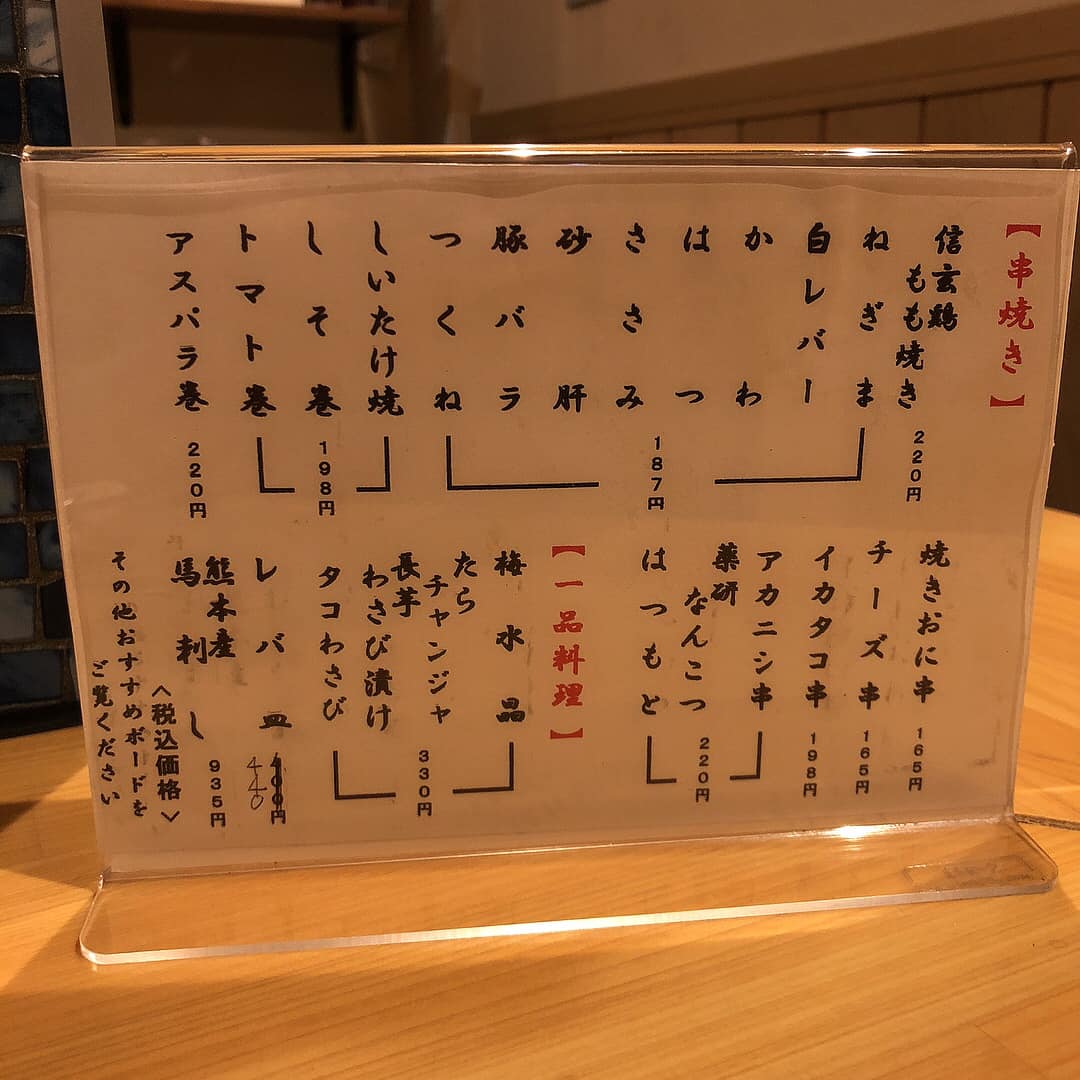 【串焼き】
信玄鶏
もも焼き
220円
ねぎま
白レバー
かわ
はつ
ささみ
砂肝
豚バラ
つくね
187円
しいたけ焼
しそ巻
トマト巻
198円
アスパラ巻
220円
焼きおに串
165円
チーズ串
165円
イカタコ串
198円
アカニシ串
薬研
なんこつ
はつもと
220円
【一品料理】
梅水晶
たら
チャンジャ
長芋
わさび漬け
タコわさび
330円
レバ皿
440
円
熊本産
馬刺し
935円
＜税込価格＞
その他おすすめボードを
ご覧ください